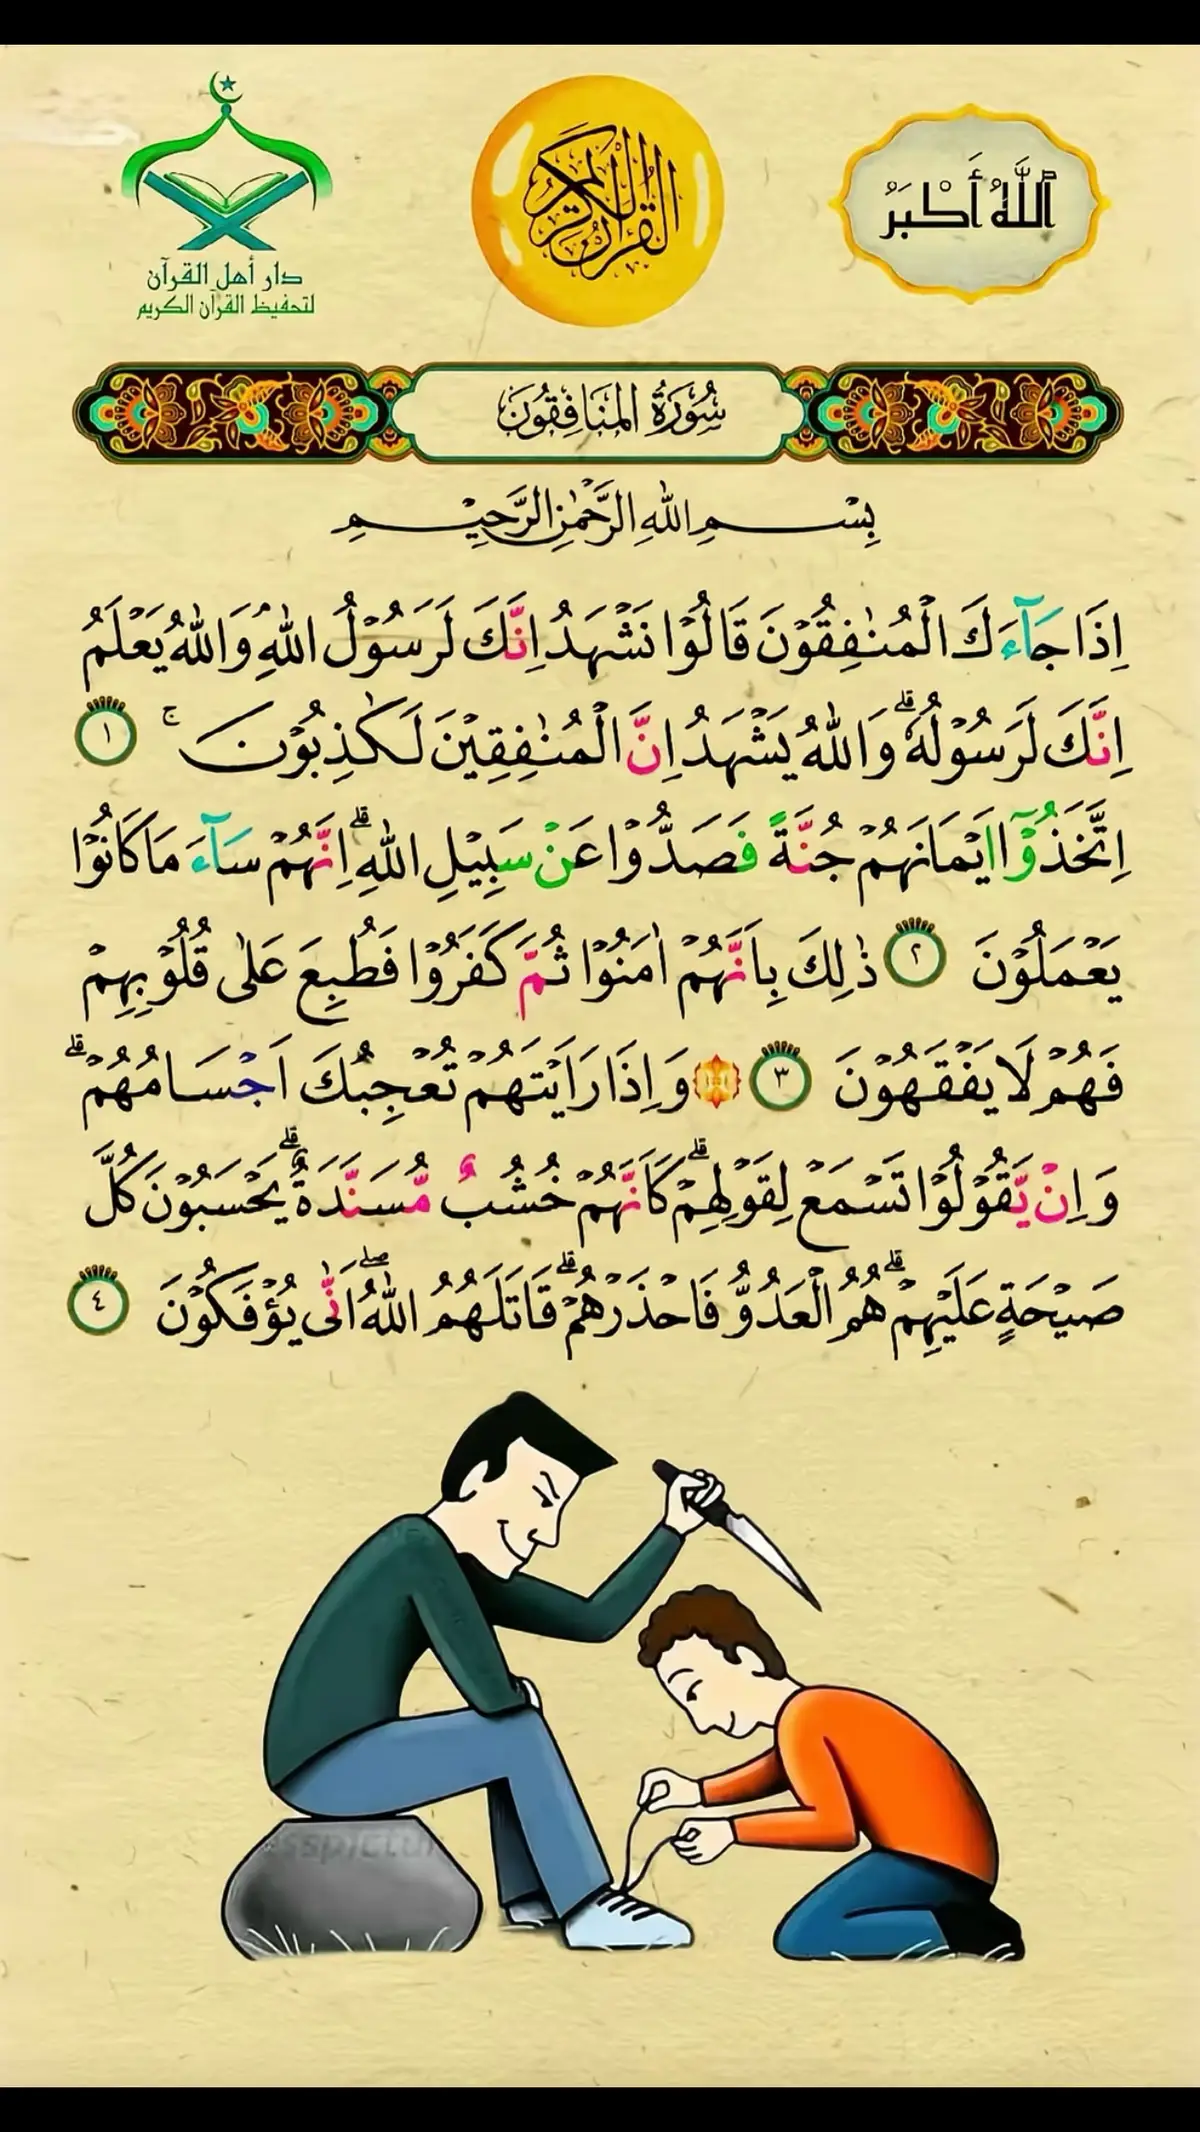 اللّٰهُ أَكْبَرُ
القرآن الكريم
دار أهل القرآن
لتحفيظ القرآن الكريم
سُوْرَةُ المُنَافِقُونَ
بِسْمِ اللّٰهِ الرَّحْمٰنِ الرَّحِيْمِ
اِذَا جَآءَكَ الْمُنٰفِقُوْنَ قَالُوْا نَشْهَدُ اِنَّكَ لَرَسُوْلُ اللّٰهِۘ وَاللّٰهُ يَعْلَمُ
اِنَّكَ لَرَسُوْلُهٗۗ وَاللّٰهُ يَشْهَدُ اِنَّ الْمُنٰفِقِيْنَ لَكٰذِبُوْنَۚ ١
اِتَّخَذُوْٓا اَيْمَانَهُمْ جُنَّةً فَصَدُّوْا عَنْ سَبِيْلِ اللّٰهِۗ اِنَّهُمْ سَآءَ مَا كَانُوْا
يَعْمَلُوْنَ ٢ ذٰلِكَ بِاَنَّهُمْ اٰمَنُوْا ثُمَّ كَفَرُوْا فَطُبِعَ عَلٰى قُلُوْبِهِمْ
فَهُمْ لَا يَفْقَهُوْنَ ٣ ۞ وَاِذَا رَاَيْتَهُمْ تُعْجِبُكَ اَجْسَامُهُمْۗ
وَاِنْ يَّقُوْلُوْا تَسْمَعْ لِقَوْلِهِمْۗ كَاَنَّهُمْ خُشُبٌ مُّسَنَّدَةٌۗ يَحْسَبُوْنَ كُلَّ
صَيْحَةٍ عَلَيْهِمْۗ هُمُ الْعَدُوُّ فَاحْذَرْهُمْۗ قَاتَلَهُمُ اللّٰهُۖ اَنّٰى يُؤْفَكُوْنَ ٤